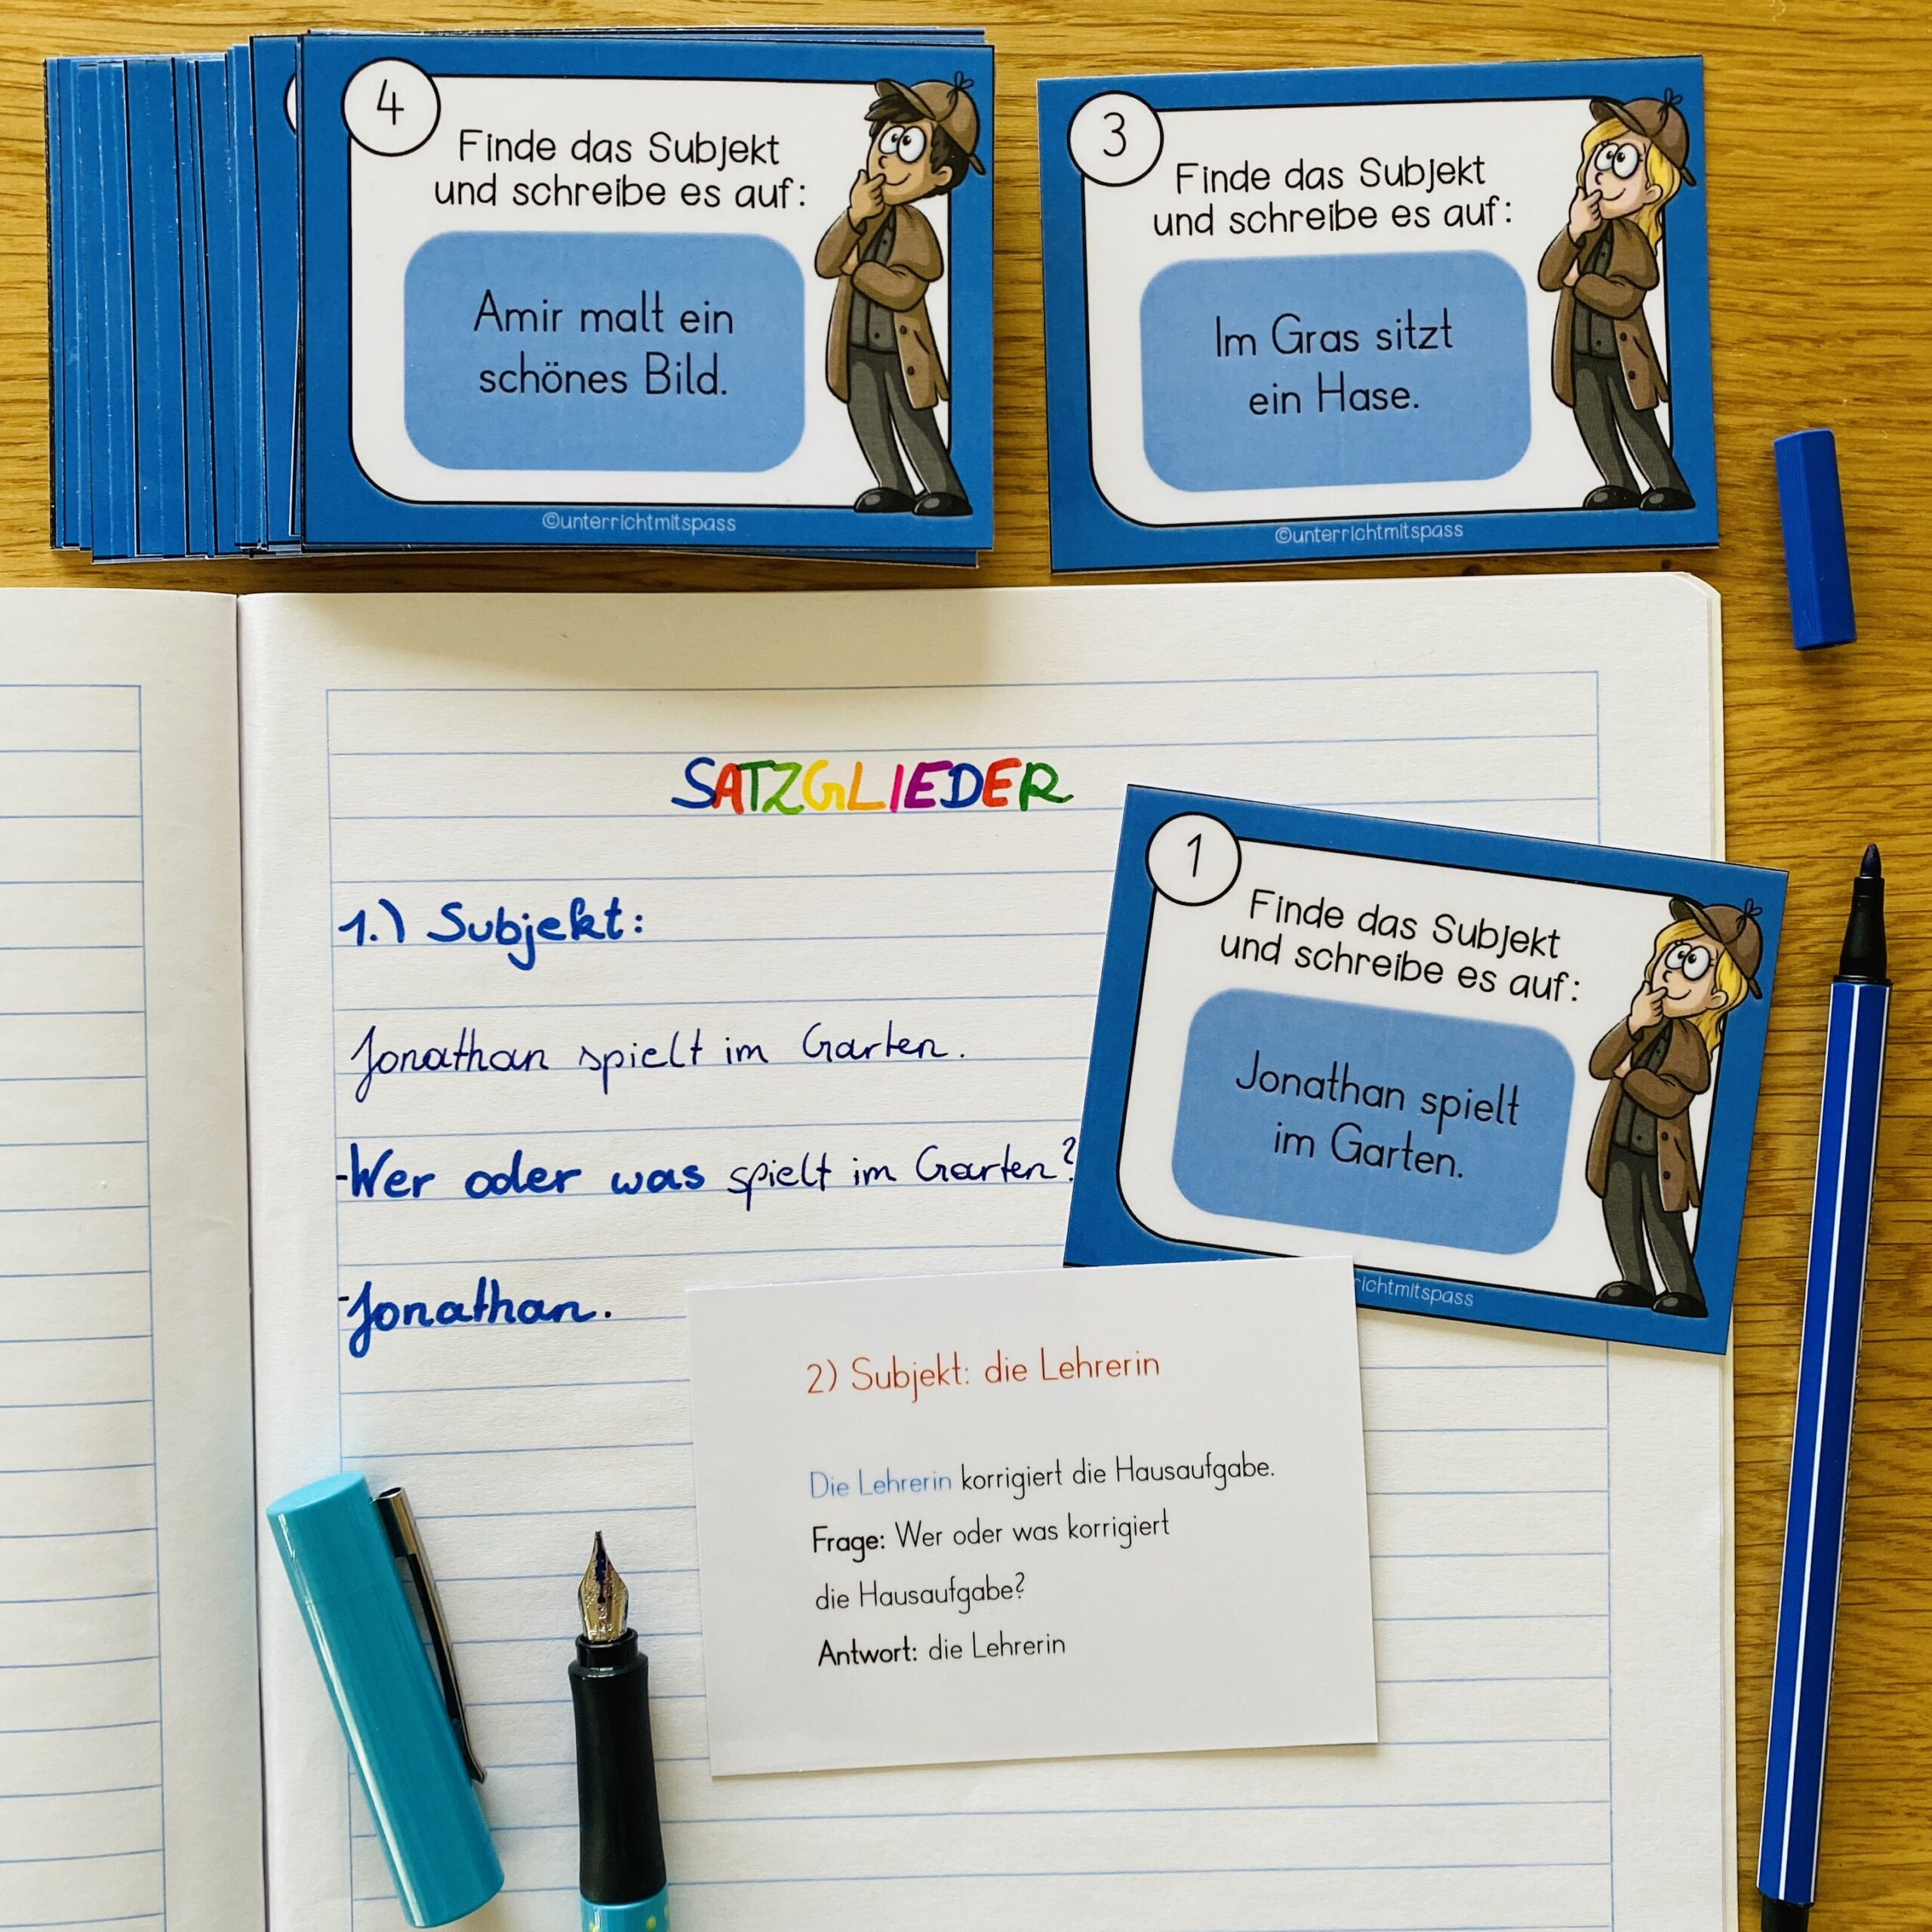 4
Finde das Subjekt
und schreibe es auf:
Amir malt ein
schönes Bild.
©unterrichtmitspass
3
Finde das Subjekt
und schreibe es auf:
Im Gras sitzt
ein Hase.
©unterrichtmitspass
SATZGLIEDER
1.) Subjekt:
Jonathan spielt im Garten.
-Wer oder was spielt im Garten?
-Jonathan.
1
Finde das Subjekt
und schreibe es auf:
Jonathan spielt
im Garten.
richtmitspass
2) Subjekt: die Lehrerin
Die Lehrerin korrigiert die Hausaufgabe.
Frage: Wer oder was korrigiert
die Hausaufgabe?
Antwort: die Lehrerin